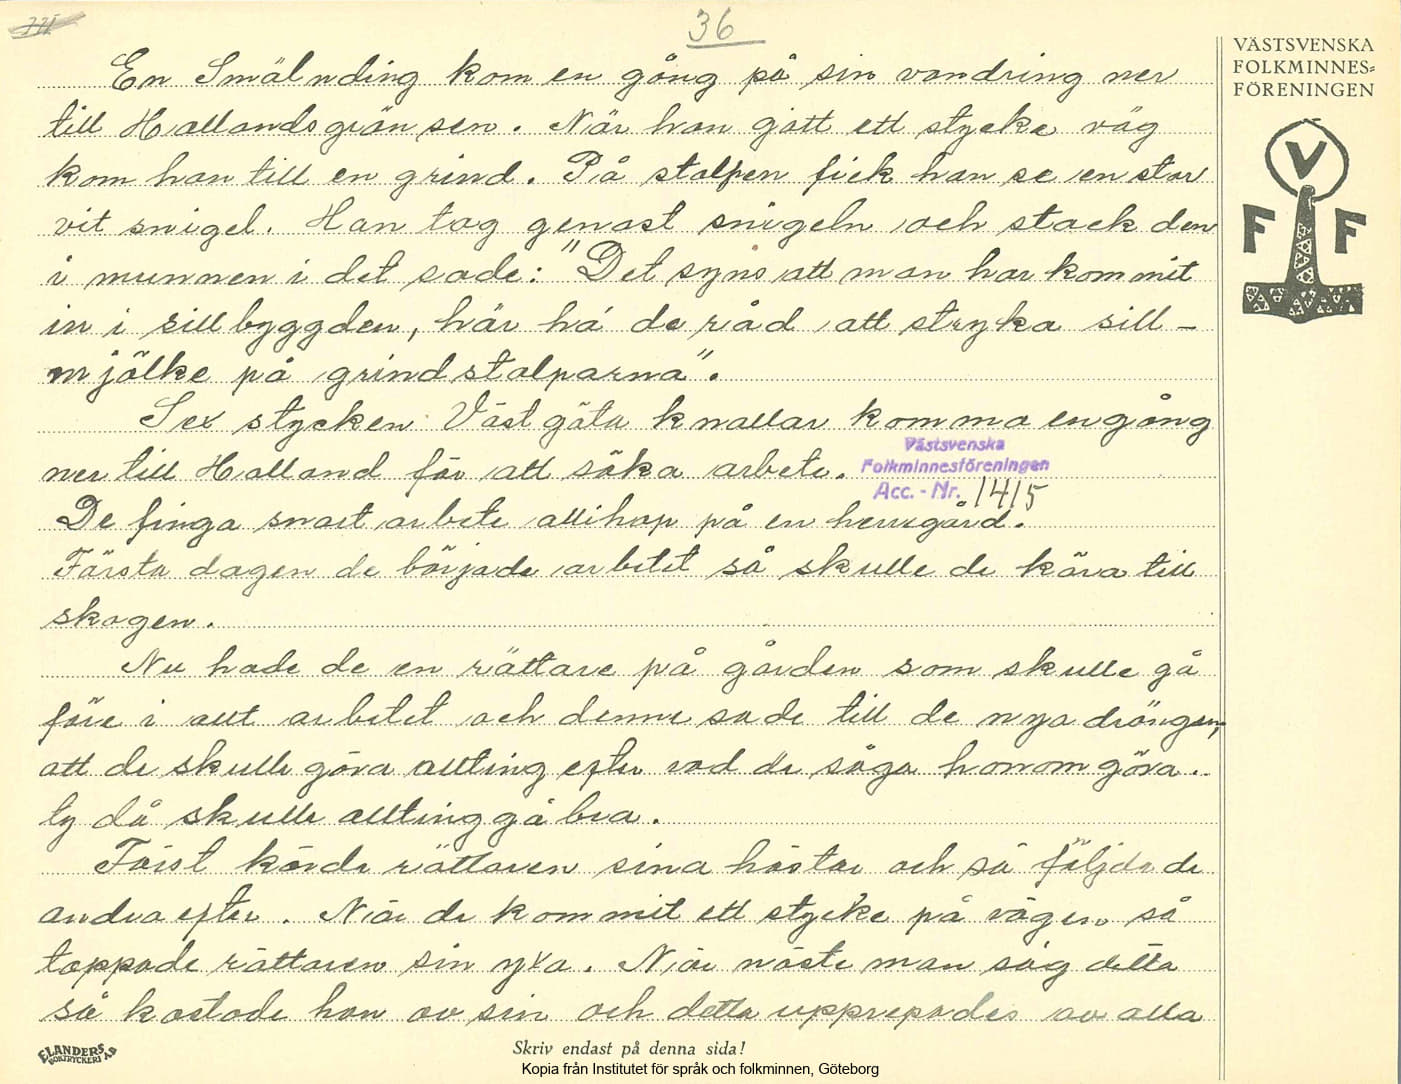 36
VÄSTSVENSKA
FOLKMINNES=
FÖRENINGEN
V
F F
En Smålnding kom en gång på sin vandring ner
till Hallandsgränsen. När han gått ett stycke väg
kom han till en grind. På stolpen fick han se en stor
vit snigel. Han tog genast snigeln och stack den
i munnen i det sade: "Det syns att man har kommit
in i sillbyggden, här há de råd att stryka sill-
mjölke på grindstolparna".
Sex stycken Västgöta knallar komma en gång
ner till Halland för att söka arbete.
Västsvenska
Folkminnesföreningen
Acc. - Nr. 1415
De finga snart arbete allihop på en herrgård.
Första dagen de började arbetet så skulle de köra till
skogen.
Nu hade de en rättare på gården som skulle gå
före i allt arbetet och denne sade till de nya drängen,
att de skulle göra allting efter vad de såga honom göra..
ty då skulle allting gå bra.
Först körde rättaren sina hästar och så följde de
andra efter. När de kommit ett stycke på vägen så
tappade rättaren sin yxa. När näste man såg detta
så kastade han av sin och detta upprepades av alla
ELANDERS
BOKTRYCKERI AB
Skriv endast på denna sida!
Kopia från Institutet för språk och folkminnen, Göteborg